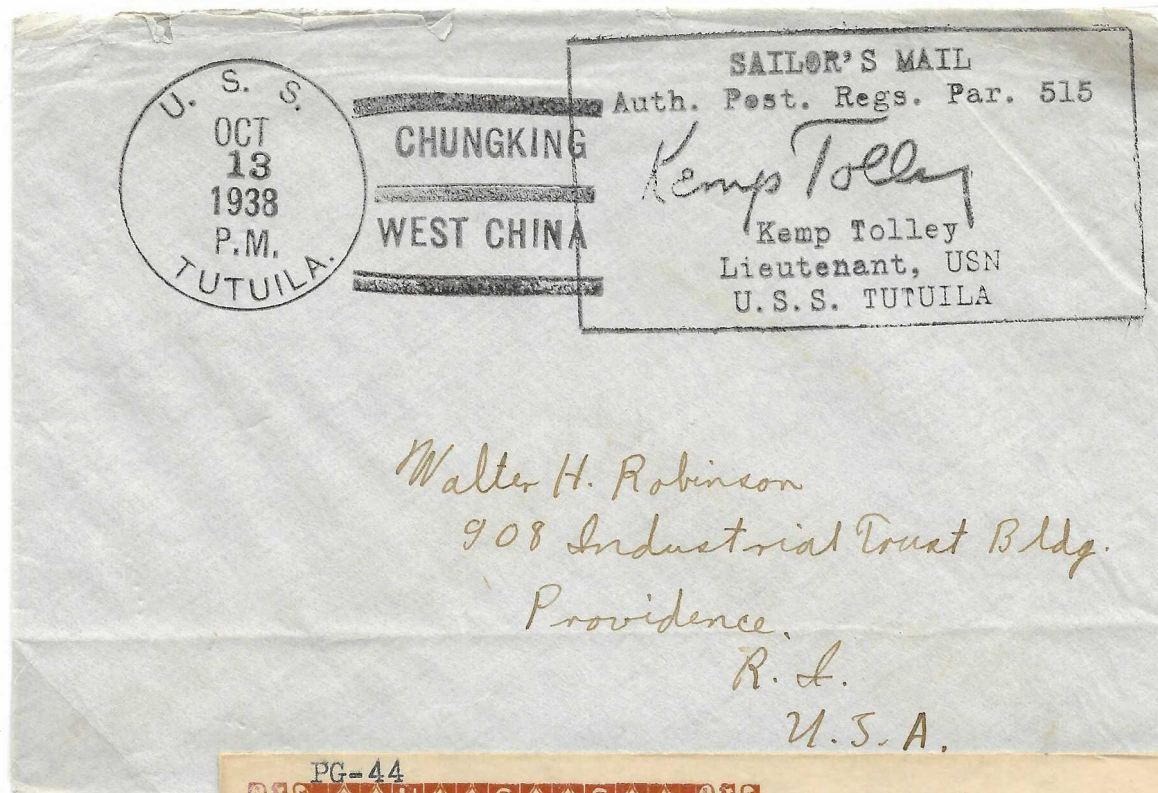 U. S. S.
OCT
13
1938
P.M.
TUTUILA.
CHUNGKING
WEST CHINA
SAILOR'S MAIL
Auth. Post. Regs. Par. 515
Kemp Tolley
Kemp Tolley
Lieutenant, USN
U.S.S. TUTUILA
Walter H. Robinson
908 Industrial Trust Bldg.
Providence.
R. I.
U. S. A.
PG-44